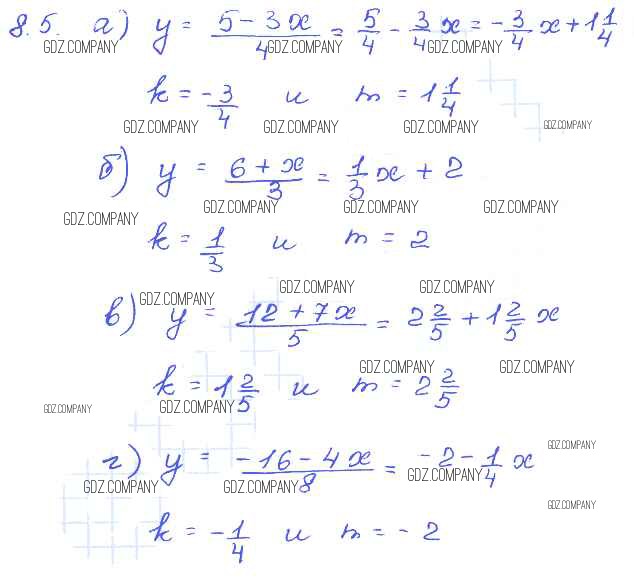 8.5. а) y = (5 - 3x)/4 = 5/4 - 3/4 x = -3/4 x + 1 1/4
GDZ.COMPANY GDZ.COMPANY GDZ.COMPANY
k = -3/4 и m = 1 1/4
GDZ.COMPANY GDZ.COMPANY GDZ.COMPANY GDZ.COMPANY
б) y = (6 + x)/3 = 1/3 x + 2
GDZ.COMPANY GDZ.COMPANY GDZ.COMPANY GDZ.COMPANY
k = 1/3 и m = 2
GDZ.COMPANY GDZ.COMPANY GDZ.COMPANY
в) y = (12 + 7x)/5 = 2 2/5 + 1 2/5 x
GDZ.COMPANY GDZ.COMPANY
k = 1 2/5 и m = 2 2/5
GDZ.COMPANY GDZ.COMPANY
GDZ.COMPANY
г) y = (-16 - 4x)/8 = -2 - 1/4 x
GDZ.COMPANY GDZ.COMPANY GDZ.COMPANY
GDZ.COMPANY
k = -1/4 и m = -2